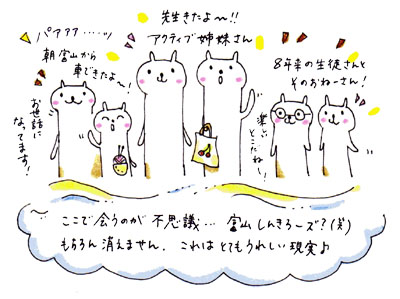 先生きたよ〜!!
アクティブ姉妹さん
パァァァ……ッ
朝富山から
車できたよ〜!
お世話に
なってます!
8年来の生徒さんと
そのおねーさん!
遠いとこたね〜!
ここで会うのが不思議… 富山しんきろーズ?(笑)
もちろん消えません。これはとてもうれしい現実♪